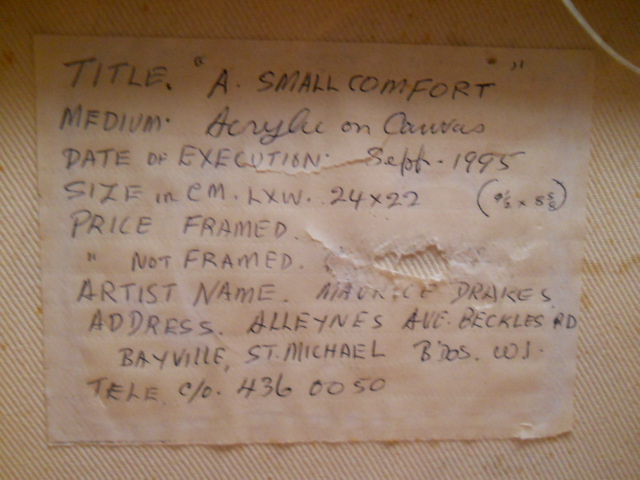 TITLE. "A. SMALL COMFORT"
MEDIUM. Acrylic on Canvas
DATE OF EXECUTION. Sept. 1995
SIZE in CM. LXW. 24x22 (9½ x 8⅝)
PRICE FRAMED.
" NOT FRAMED.
ARTIST NAME. MAURICE DRAKES
ADDRESS. ALLEYNES AVE. BECKLES RD
BAYVILLE, ST. MICHAEL B'DOS. W.I.
TELE. c/o. 436 0050